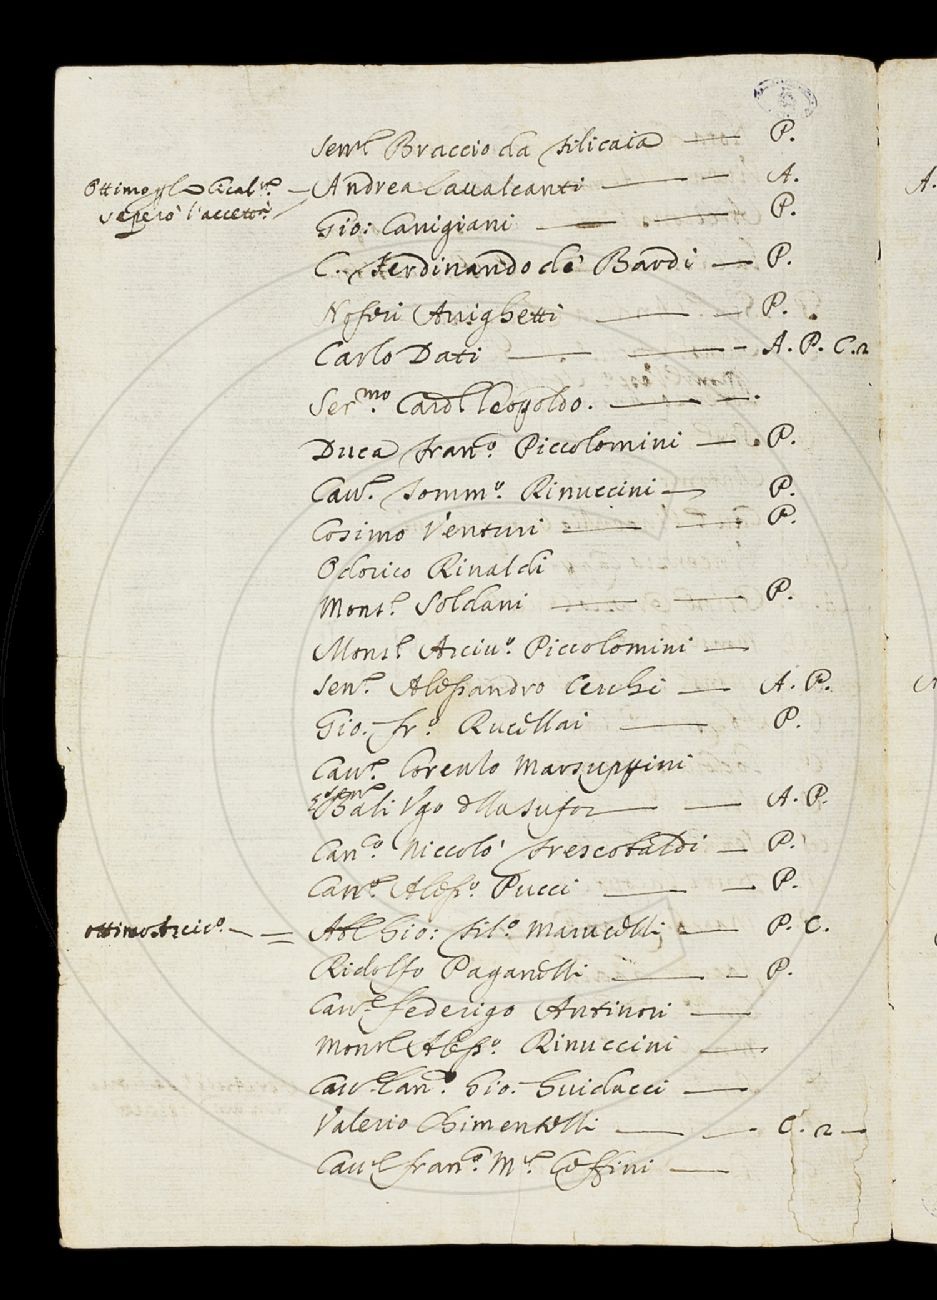 Sen.l Braccio da Filicaia — P.
Ottimo p l Cical.e — Andrea Cavalcanti — A.
se però l'accettò
Gio: Canigiani — P.
C. Ferdinando de' Bardi — P.
Noferi Anighetti — P.
Carlo Dati — A. P. C. 2
Ser.mo Card.l Leopoldo. —
Duca Fran.o Piccolomini — P.
Cav.e Tomm.o Rinuccini — P.
Cosimo Venturi — P.
Odorico Rinaldi
Mons.r Soldani — P.
Mons.r Arciv.o Piccolomini —
Sen.e Alessandro Cerchi — A. P.
Gio. Fr.o Rucellai — P.
Cav.e Lorenzo Marsuppini
Bali Ugo della Stufa — A. P.
Can.o Niccolò Frescobaldi — P.
Can.o Aless.o Pucci — P.
ottimo Arcic.o — = Ab.e Gio: Fil.o Marucelli — P. C.
Ridolfo Paganelli — P.
Cav.e Federigo Antinori —
Mons.r Aless.o Rinuccini —
Cav.e Can.o Gio. Guidacci —
Valerio Chimentelli — C. 2 —
Cav.e Fran.o M.a Ceffini —
A.